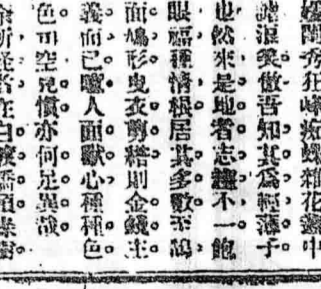 嬝閨秀狂蜂痴蝶雜花叢中
諧浪笑傲吾知其爲輕薄子
也然來是地者志趣不一飽
眼福種情根居其多數至鵠
面鳩形曳衣剪綹則金錢主
義而已噫人面獸心種種色
色司空見慣亦何足異哉
余所怪者在白